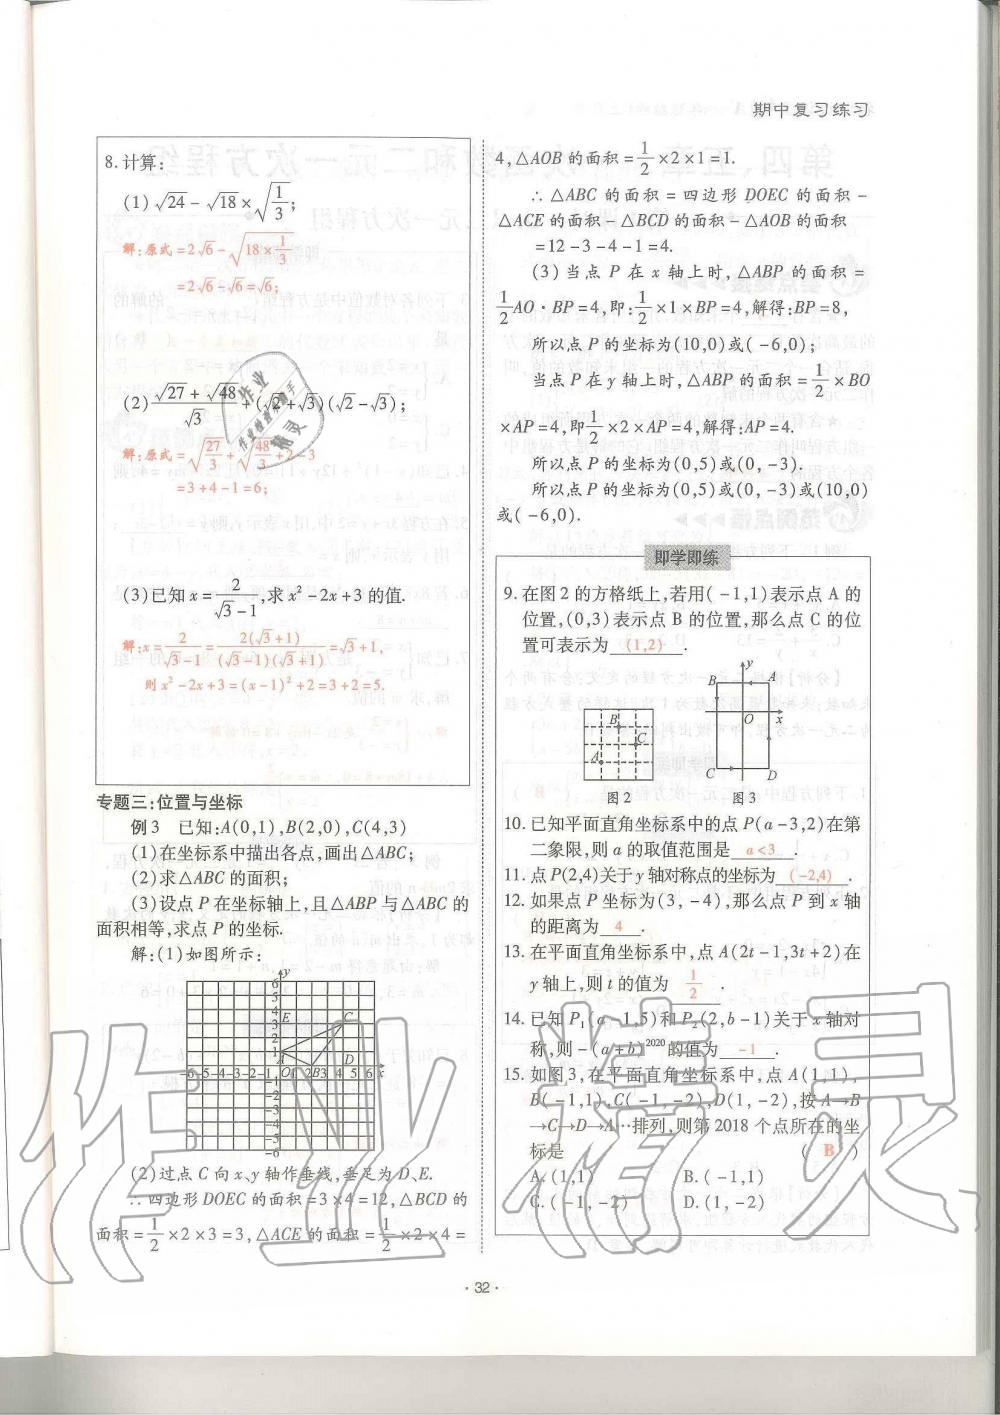 期中复习练习
8.计算:
(1)√24 - √18 × √(1/3);
解:原式=2√6 - √(18×1/3)
=2√6-√6=√6;
(2)(√27+√48)/√3+(√2+√3)(√2-√3);
解:原式=√(27/3)+√(48/3)+2-3
=3+4-1=6;
(3)已知x=2/(√3-1),求x²-2x+3的值.
解:x=2/(√3-1)=2(√3+1)/((√3-1)(√3+1))=√3+1,
则x²-2x+3=(x-1)²+2=3+2=5.
专题三:位置与坐标
例3 已知:A(0,1),B(2,0),C(4,3)
(1)在坐标系中描出各点,画出△ABC;
(2)求△ABC的面积;
(3)设点P在坐标轴上,且△ABP与△ABC的
面积相等,求点P的坐标.
解:(1)如图所示:
(2)过点C向x、y轴作垂线,垂足为D、E.
∴四边形DOEC的面积=3×4=12,△BCD的
面积=1/2×2×3=3,△ACE的面积=1/2×2×4=
4,△AOB的面积=1/2×2×1=1.
∴△ABC的面积=四边形DOEC的面积-
△ACE的面积-△BCD的面积-△AOB的面积
=12-3-4-1=4.
(3)当点P在x轴上时,△ABP的面积=
1/2AO·BP=4,即:1/2×1×BP=4,解得:BP=8,
所以点P的坐标为(10,0)或(-6,0);
当点P在y轴上时,△ABP的面积=1/2×BO
×AP=4,即1/2×2×AP=4,解得:AP=4.
所以点P的坐标为(0,5)或(0,-3);
所以点P的坐标为(0,5)或(0,-3)或(10,0)
或(-6,0).
即学即练
9.在图2的方格纸上,若用(-1,1)表示点A的
位置,(0,3)表示点B的位置,那么点C的位
置可表示为 (1,2) .
图2 图3
10.已知平面直角坐标系中的点P(a-3,2)在第
二象限,则a的取值范围是 a<3 .
11.点P(2,4)关于y轴对称点的坐标为 (-2,4) .
12.如果点P坐标为(3,-4),那么点P到x轴
的距离为 4 .
13.在平面直角坐标系中,点A(2t-1,3t+2)在
y轴上,则t的值为 1/2 .
14.已知P₁(a-1,5)和P₂(2,b-1)关于x轴对
称,则-(a+b)²⁰²⁰的值为 -1 .
15.如图3,在平面直角坐标系中,点A(1,1),
B(-1,1),C(-1,-2),D(1,-2),按A→B
→C→D→A…排列,则第2018个点所在的坐
标是 ( B )
A.(1,1) B.(-1,1)
C.(-1,-2) D.(1,-2)
·32·
作业精灵